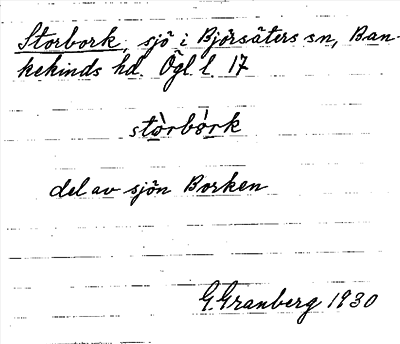 Storbork, sjö i Björsäters sn, Ban-
kekinds hd. Ögl. l. 17
stòrbórk
del av sjön Borken
G. Granberg 1930